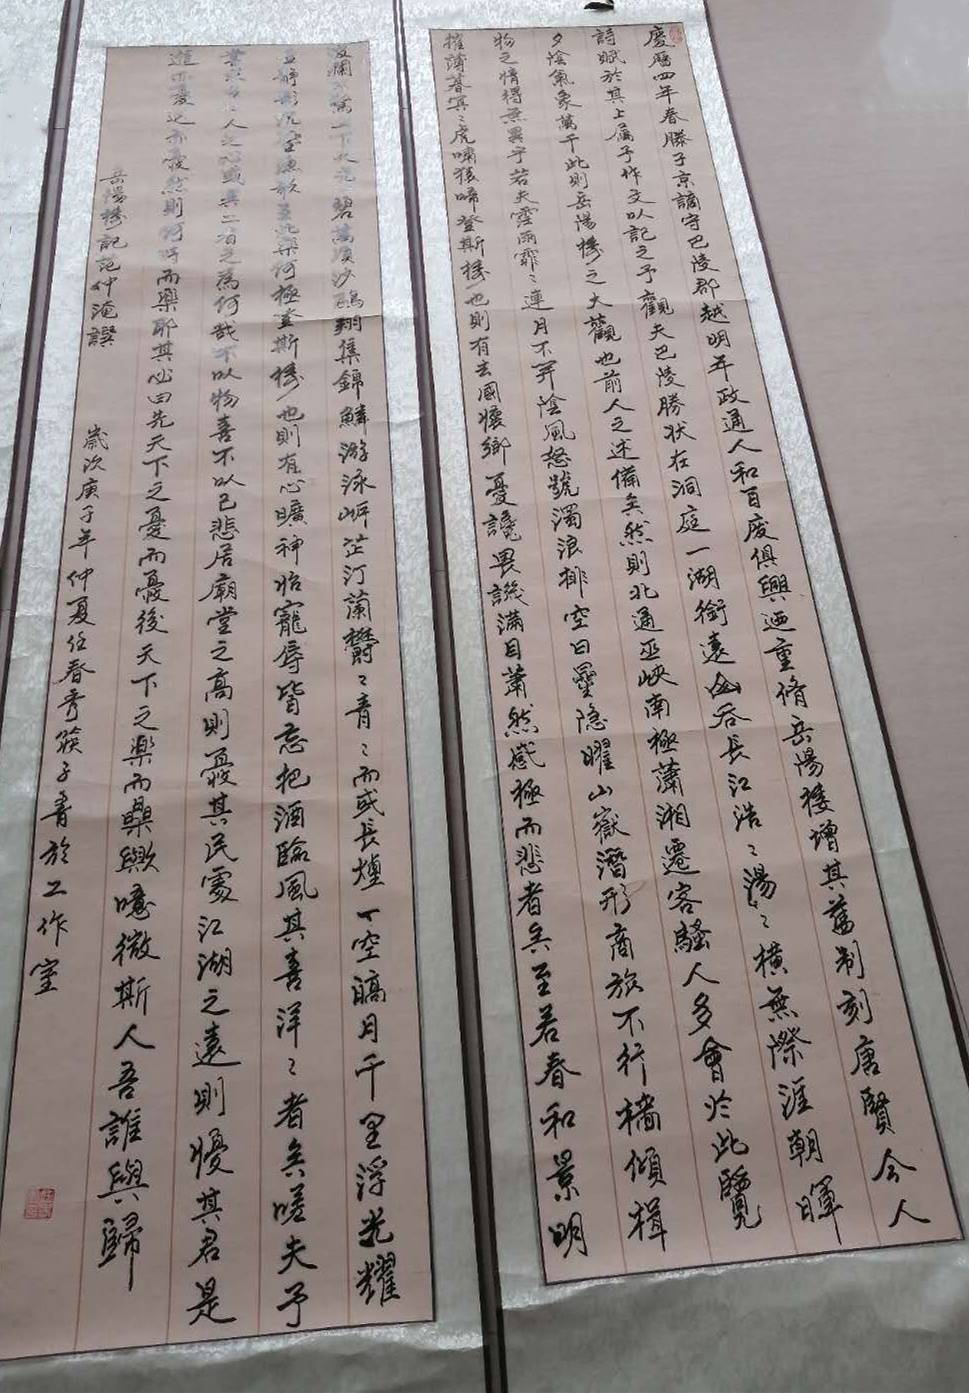 慶曆四年春滕子京謫守巴陵郡越明年政通人和百廢俱興迺重脩岳陽樓增其舊制刻唐賢今人
詩賦於其上属予作文以記之予觀夫巴陵勝状在洞庭一湖銜遠山吞長江浩〻湯〻橫無際涯朝暉
夕陰氣象萬千此則岳陽樓之大觀也前人之述備矣然則北通巫峽南極瀟湘遷客騷人多會於此覽
物之情得無異乎若夫霪雨霏〻連月不開陰風怒號濁浪排空日星隐曜山嶽潛形商旅不行檣傾楫
摧薄暮冥〻虎嘯猿啼登斯樓也則有去國懷鄉憂讒畏譏滿目蕭然感極而悲者矣至若春和景明
波瀾不驚上下天光碧萬頃沙鷗翔集錦鱗游泳岸芷汀蘭欝〻青〻而或長煙一空皜月千里浮光耀
静影沉璧漁歌互此樂何極登斯樓也則有心曠神怡寵辱皆忘把酒臨風其喜洋〻者矣嗟夫予
人之心或異二者之為何哉不以物喜不以己悲居廟堂之高則憂其民處江湖之遠則憂其君是
進亦憂退亦憂然則何時而樂耶其必曰先天下之憂而憂後天下之樂而樂歟噫微斯人吾誰與歸
岳陽樓記范仲淹撰 歲次庚子年仲夏任春秀筷子書於工作室